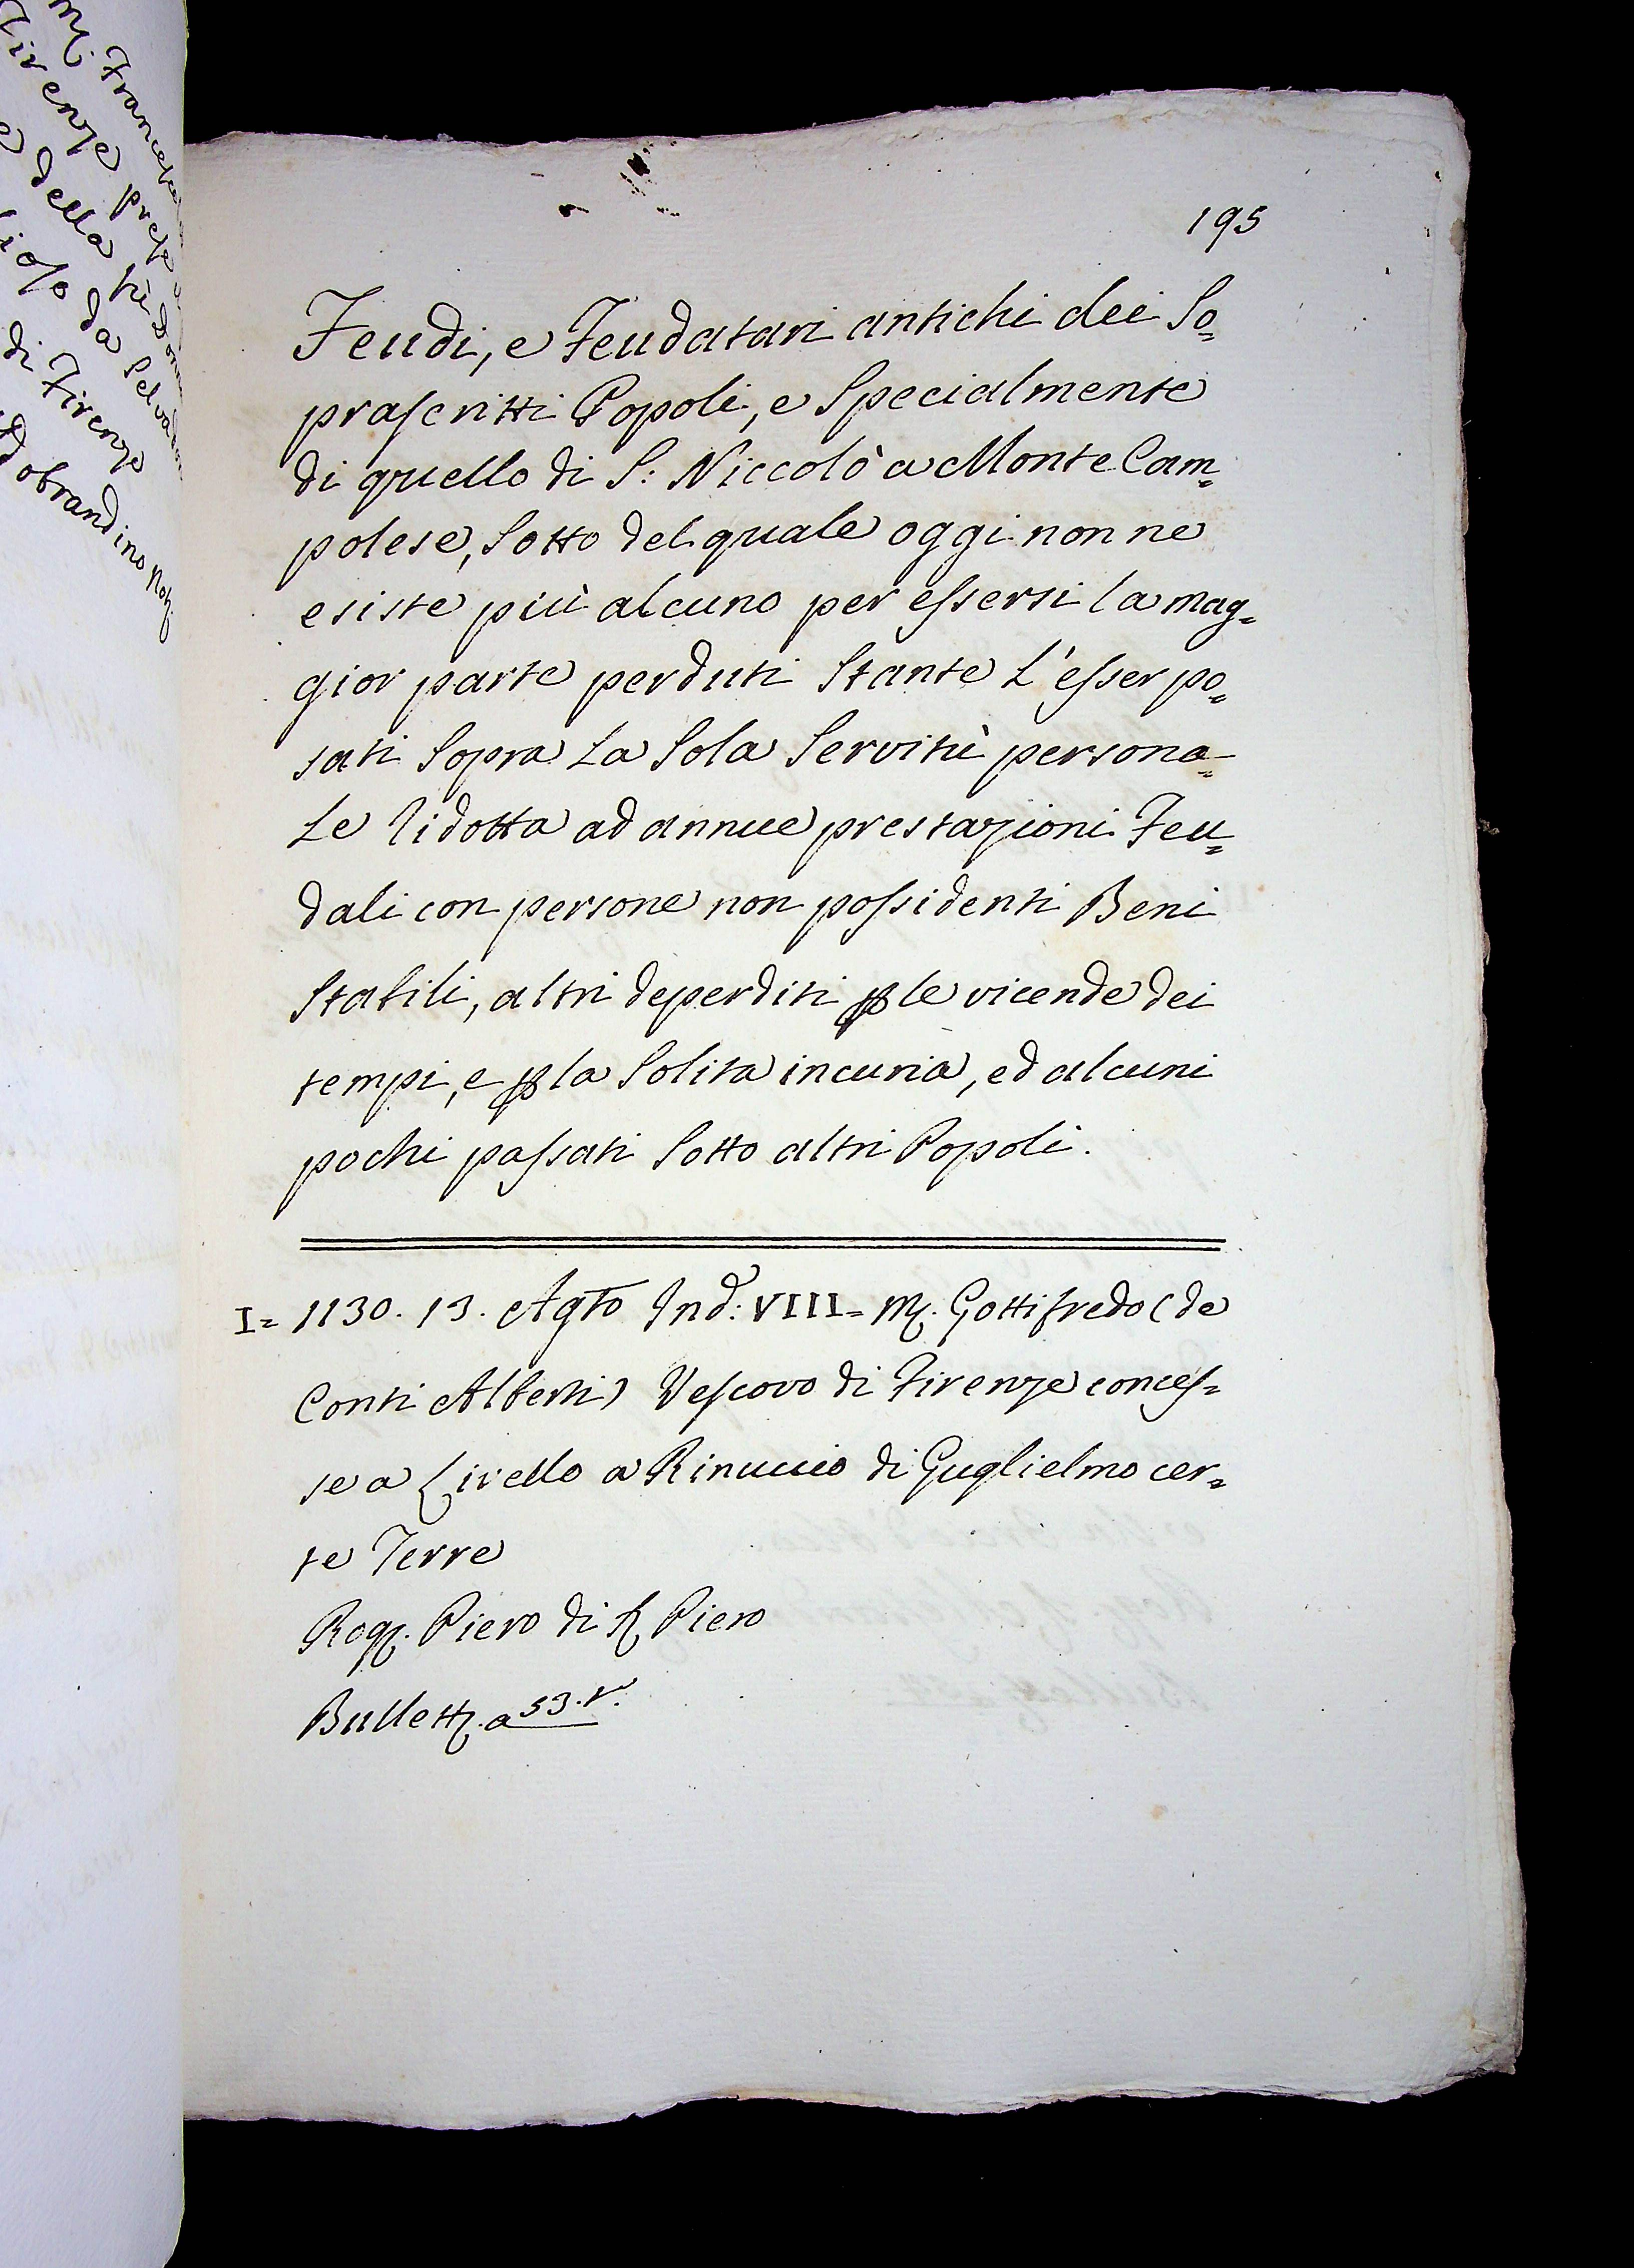 M. Francesco
Firenze prese
e della
da Selvad
di Firenze
dobrandino Not:
195
Feudi, e Feudatari antichi dei So=
prascritti Popoli, e Specialmente
di quello di S: Niccolò a Monte Cam=
polese, Sotto del quale oggi non ne
esiste più alcuno per essersi la mag=
gior parte perduti Stante L'esser po=
sati Sopra La Sola Servitù persona=
Le ridotta ad annue prestazioni Feu=
dali con persone non possidenti Beni
Stabili, altri deperditi ꝑ le vicende dei
tempi, e ꝑ la Solita incuria, ed alcuni
pochi passati Sotto altri Popoli.
I= 1130. 13. Agto Ind: VIII= M. Gottifredo (de
Conti Alberti) Vescovo di Firenze conces=
se a Livello a Rinuccio di Guglielmo cer=
te Terre
Rog. Piero di S. Piero
Bullett. a 53. t.